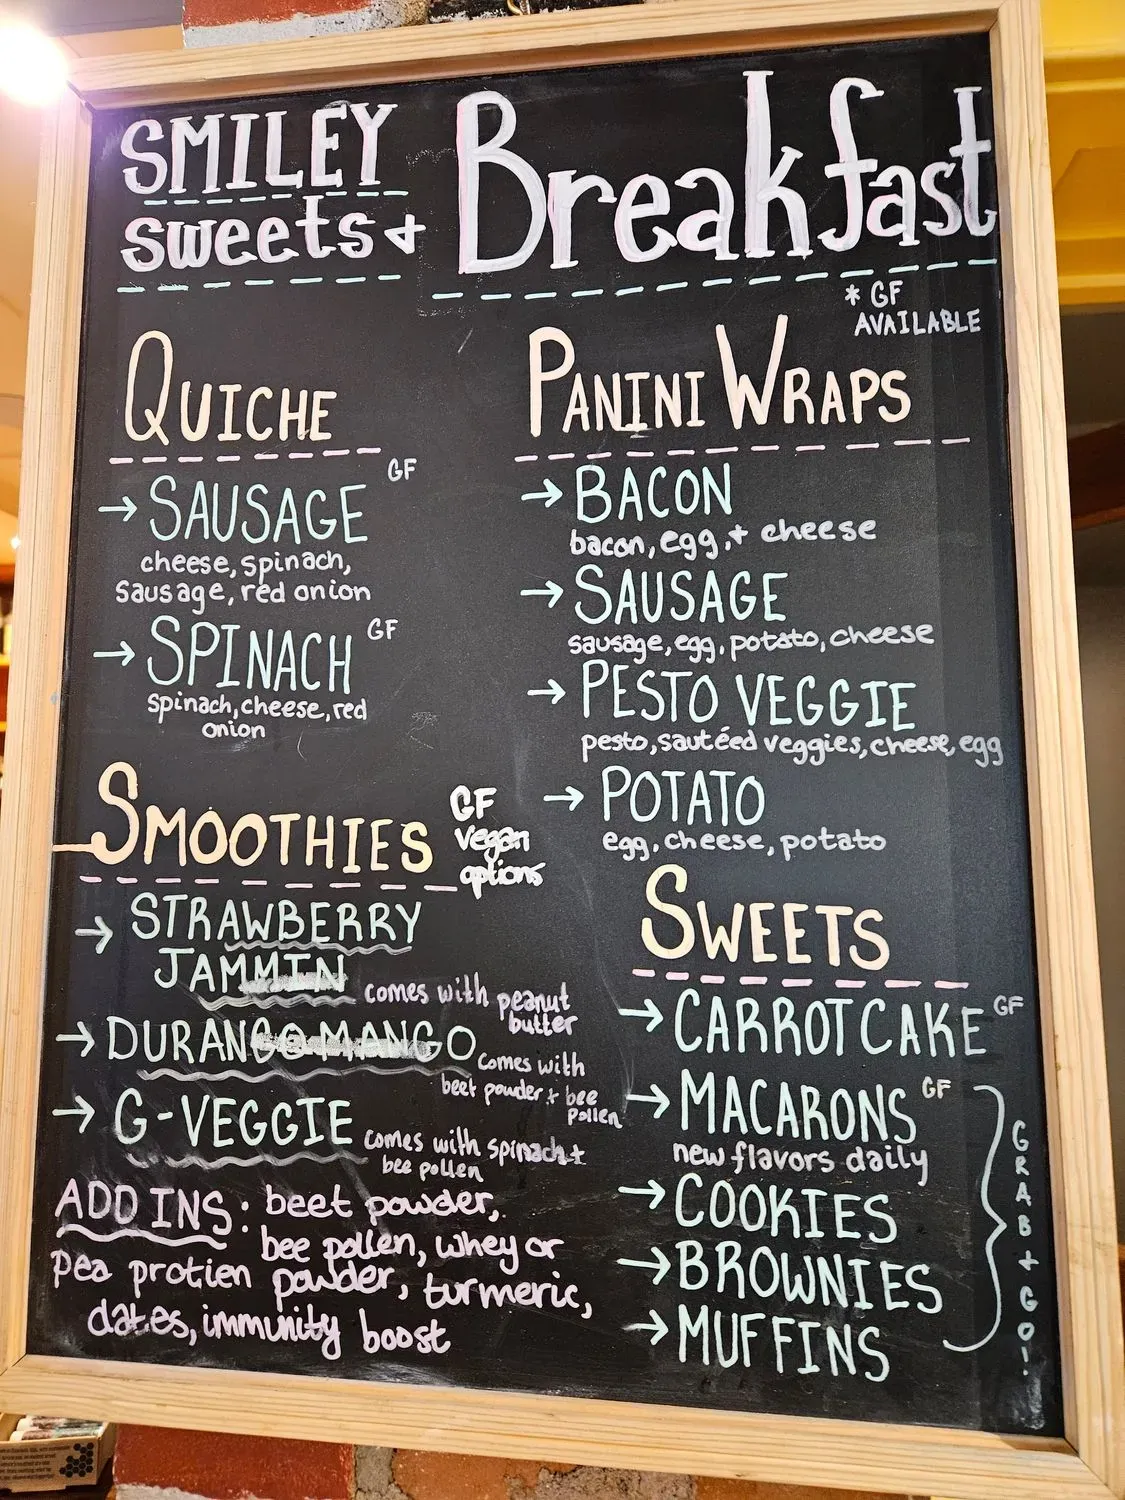 SMILEY
sweets +
Breakfast
* GF
AVAILABLE
QUICHE
→ SAUSAGE GF
cheese, spinach,
sausage, red onion
→ SPINACH GF
spinach, cheese, red
onion
PANINI WRAPS
→ BACON
bacon, egg, + cheese
→ SAUSAGE
sausage, egg, potato, cheese
→ PESTO VEGGIE
pesto, sautéed veggies, cheese, egg
→ POTATO
egg, cheese, potato
SMOOTHIES
GF
vegan
options
→ STRAWBERRY
JAMMIN
comes with peanut
butter
→ DURANGO MANGO
comes with
beet powder + bee
pollen
→ G-VEGGIE
comes with spinach +
bee pollen
ADD INS: beet powder,
bee pollen, whey or
Pea protien powder, turmeric,
dates, immunity boost
SWEETS
→ CARROT CAKE GF
→ MACARONS GF
new flavors daily
→ COOKIES
→ BROWNIES
→ MUFFINS
GRAB + GO!